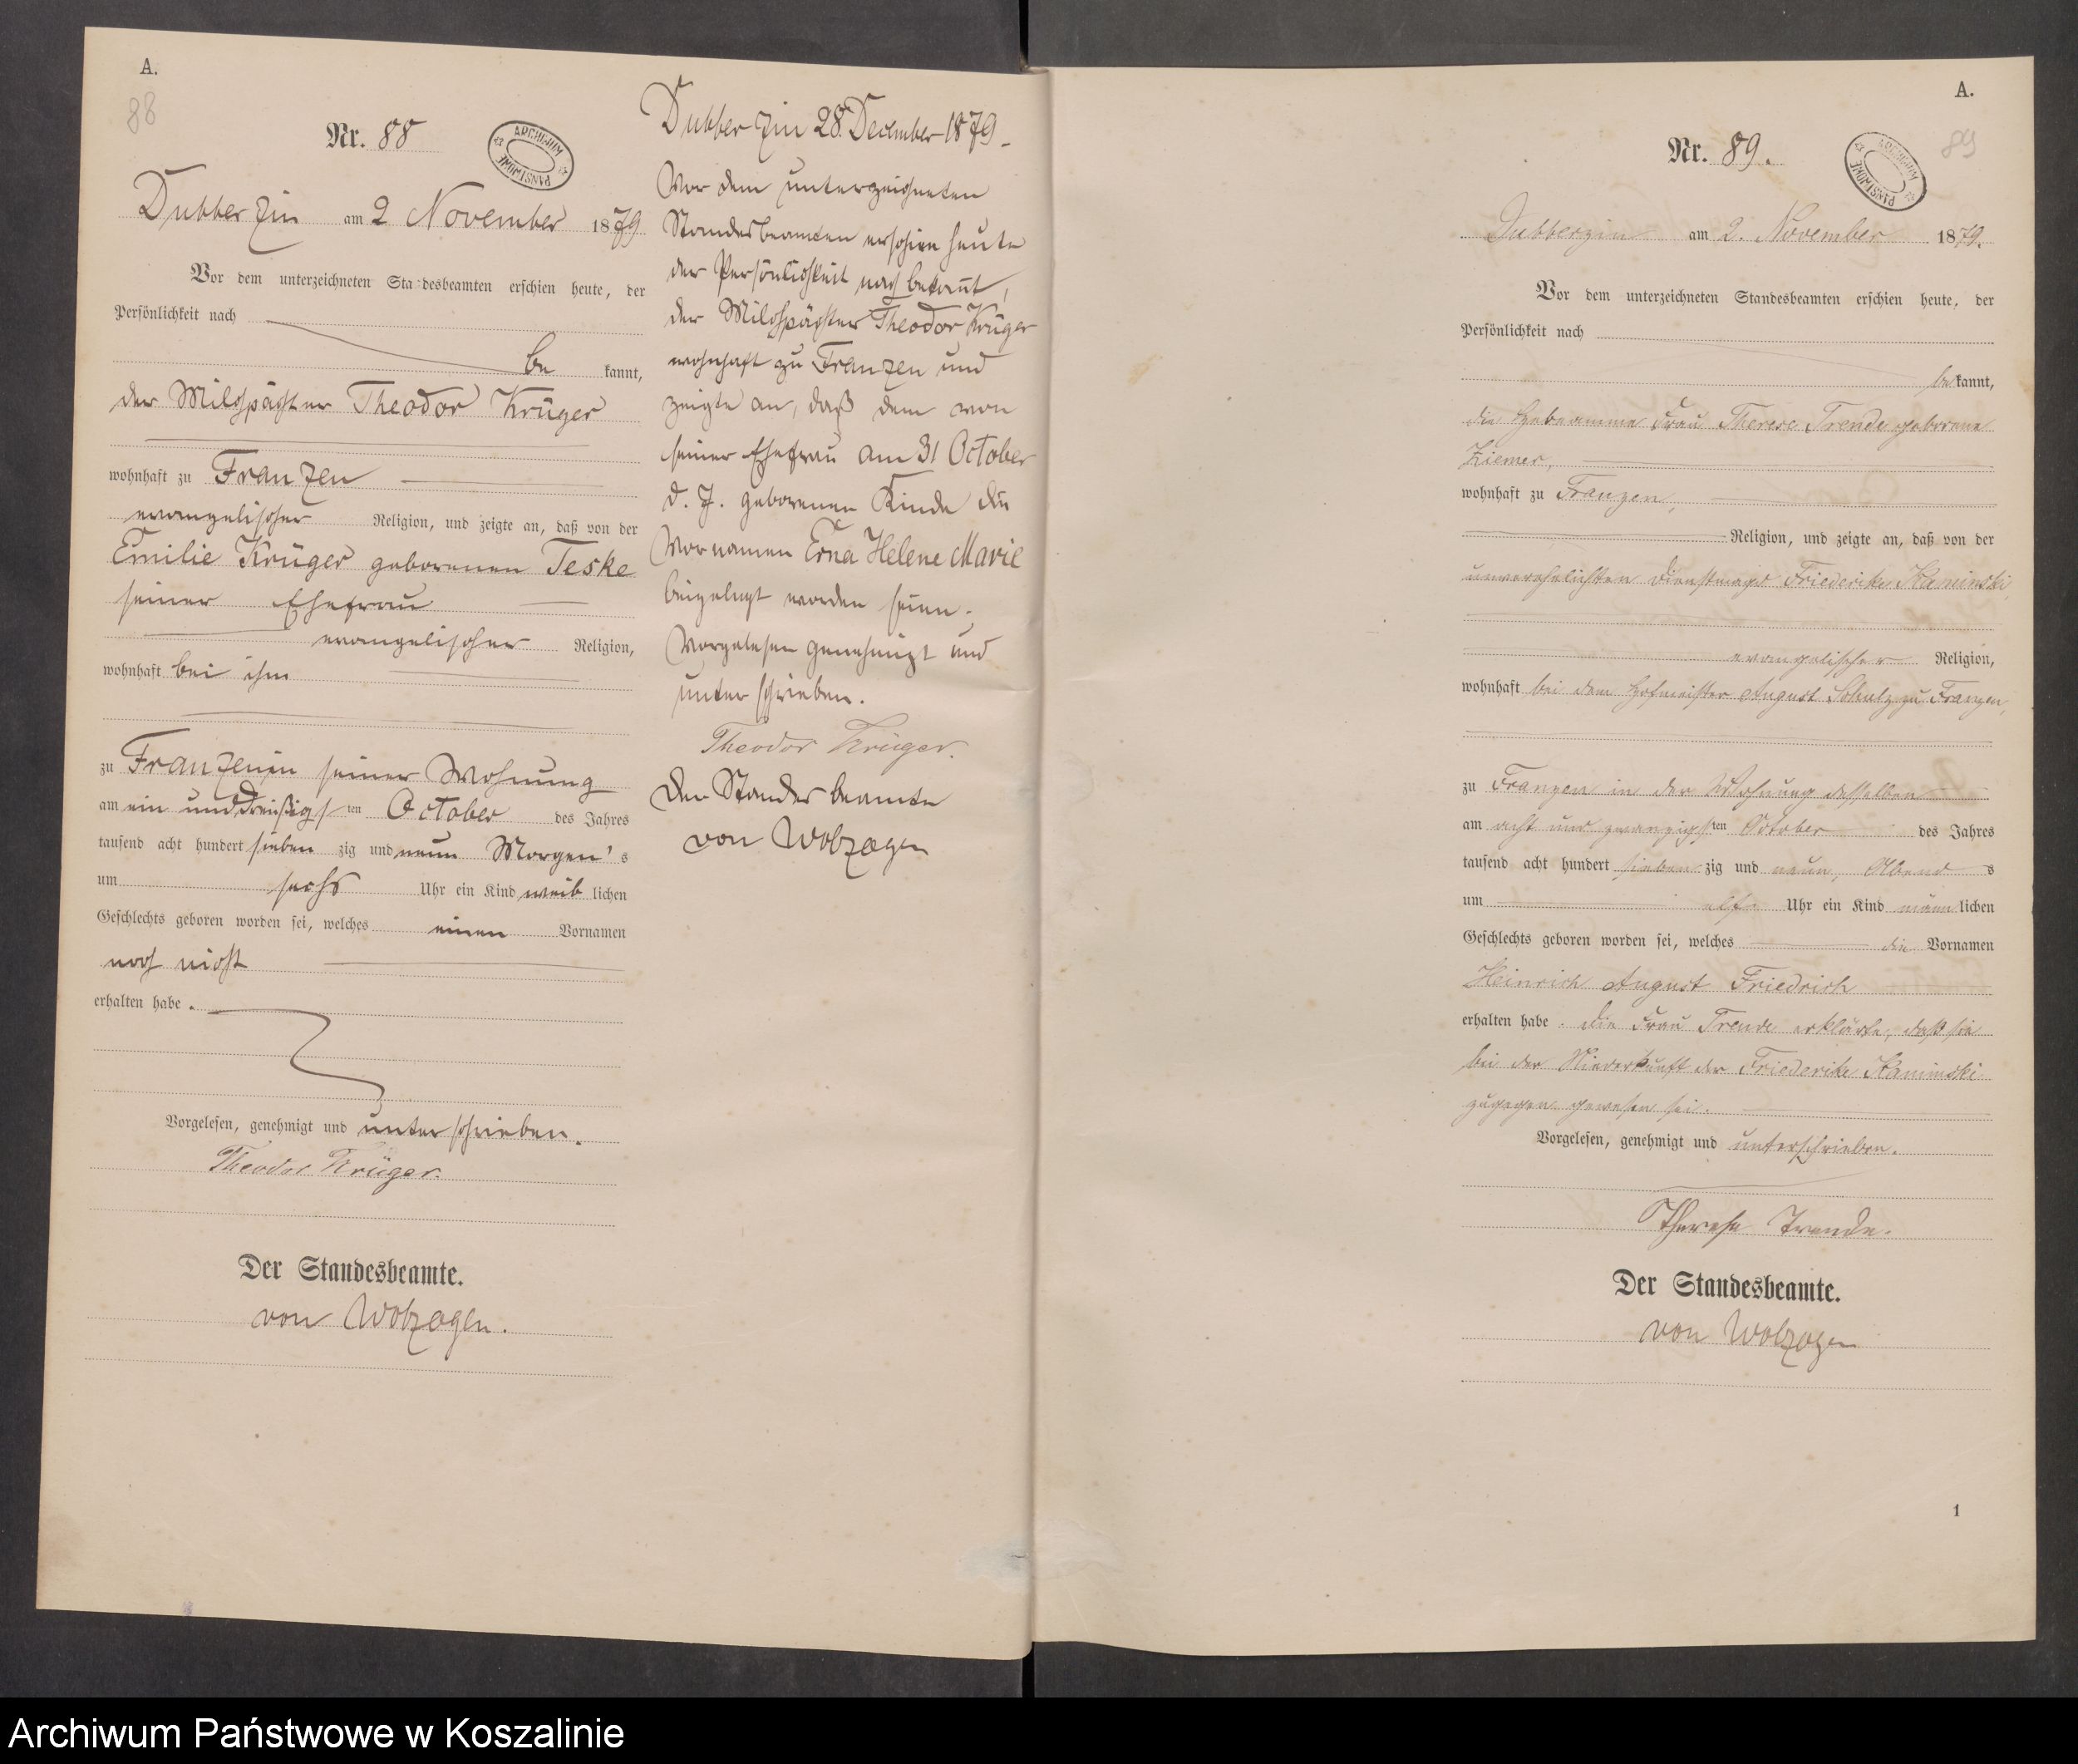 A.
88
Nr. 88
ARCHIWUM PAŃSTWOWE
Dubberzin am 2 November 1879
Vor dem unterzeichneten Standesbeamten erschien heute, der
Persönlichkeit nach
be kannt,
der Milchpächter Theodor Krüger
wohnhaft zu Franzen
evangelischer Religion, und zeigte an, daß von der
Emilie Krüger geborenen Teske
seiner Ehefrau
evangelischer Religion,
wohnhaft bei ihm
zu Franzen in seiner Wohnung
am ein und dreißigsten October des Jahres
tausend acht hundert sieben zig und neun Morgen's
um sechs Uhr ein Kind weib lichen
Geschlechts geboren worden sei, welches einen Vornamen
noch nicht
erhalten habe.
Vorgelesen, genehmigt und unterschrieben.
Theodor Krüger.
Der Standesbeamte.
von Wolzogen.
Dubberzin 28. December 1879.
Vor dem unterzeichneten
Standesbeamten erschien heute
der Persönlichkeit nach bekannt,
der Milchpächter Theodor Krüger
wohnhaft zu Franzen und
zeigte an, daß dem von
seiner Ehefrau am 31 October
d. J. geborenen Kinde die
Vornamen Erna Helene Marie
beigelegt worden seien.
Vorgelesen genehmigt und
unterschrieben.
Theodor Krüger.
Der Standesbeamte
von Wolzogen
A.
89
Nr. 89.
ARCHIWUM PAŃSTWOWE
Dubberzin am 2. November 1879.
Vor dem unterzeichneten Standesbeamten erschien heute, der
Persönlichkeit nach
be kannt,
die Hebeamme Frau Therese Trende geborene
Ziemer,
wohnhaft zu Franzen,
Religion, und zeigte an, daß von der
unverehelichten Dienstmagd Friederike Kaminski,
evangelischer Religion,
wohnhaft bei dem Hofmeister August Schulz zu Franzen,
zu Franzen in der Wohnung desselben
am acht und zwanzigsten October des Jahres
tausend acht hundert sieben zig und neun, Abend s
um elf Uhr ein Kind männ lichen
Geschlechts geboren worden sei, welches die Vornamen
Heinrich August Friedrich
erhalten habe. Die Frau Trende erklärte, daß sie
bei der Niederkunft der Friederike Kaminski
zugegen gewesen sei.
Vorgelesen, genehmigt und unterschrieben.
Therese Trende.
Der Standesbeamte.
von Wolzogen
1
Archiwum Państwowe w Koszalinie